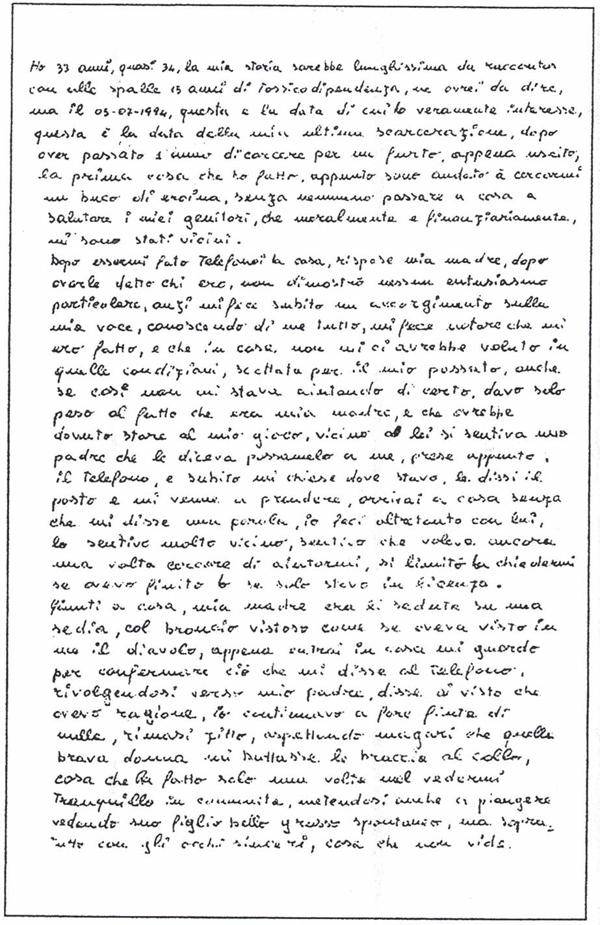 Ho 33 anni, quasi 34, la mia storia sarebbe lunghissima da raccontar
con alle spalle 15 anni di tossicodipendenza, ne avrei da dire,
ma il 05-07-1994, questa è la data di cui ho veramente interesse,
questa è la data della mia ultima scarcerazione, dopo
aver passato 1 anno di carcere per un furto, appena uscito,
la prima cosa che ho fatto, appunto sono andato a cercarmi
un buco di eroina, senza nemmeno passare a casa a
salutare i miei genitori, che moralmente e finanziariamente,
mi sono stati vicini.
Dopo essermi fato telefonai a casa, rispose mia madre, dopo
averle detto chi ero, non dimostrò nessun entusiasmo
particolare, anzi mi fece subito un accorgimento sulla
mia voce, conoscendo di me tutto, mi fece notare che mi
ero fatto, e che in casa non mi ci avrebbe voluto in
quelle condizioni, scottata per il mio passato, anche
se così non mi stava aiutando di certo, davo solo
peso al fatto che era mia madre, e che avrebbe
dovuto stare al mio gioco, vicino a lei si sentiva mio
padre che le diceva passamelo a me, prese appunto,
il telefono, e subito mi chiese dove stavo, le dissi il
posto e mi venne a prendere, arrivai a casa senza
che mi disse una parola, io feci altretanto con lui,
lo sentivo molto vicino, sentivo che voleva ancora
una volta cercare di aiutarmi, si limitò a chiedermi
se avevo finito o se solo stavo in licenza.
Giunti a casa, mia madre era li seduta su una
sedia, col broncio vistoso come se aveva visto in
me il diavolo, appena entrai in casa mi guardo
per confermare ciò che mi disse al telefono,
rivolgendosi verso mio padre, disse ai visto che
avevo ragione, io continuavo a fare finta di
nulla, rimasi zitto, aspettando magari che quella
brava donna mi buttasse le braccia al collo,
cosa che ha fatto solo una volta nel vedermi
tranquillo in comunità, metendosi anche a piangere
vedendo suo figlio bello grasso spontaneo, ma sopra-
tutto con gli occhi sinceri, cosa che non vide.